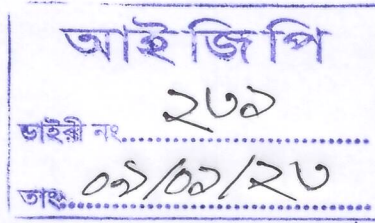 আই জি পি
ডাইরী নং ২৩৯
তাং ০৯/০৯/২৩